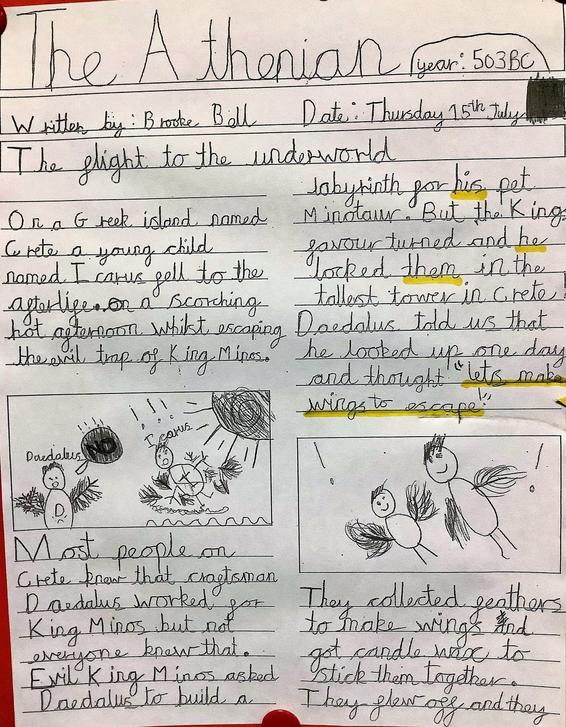 The Athenian
year: 503BC
Written by: Brooke Bell
Date: Thursday 15th July
The flight to the underworld
On a Greek island named
Crete a young child
named Icarus fell to the
afterlife.. on a scorching
hot afternoon whilst escaping
the evil trap of King Minos.
Daedalus
NO
Icarus
D
Most people on
Crete knew that craftsman
Daedalus worked for
King Minos but not
everyone knew that.
Evil King Minos asked
Daedalus to build a
labyrinth for his pet
Minotaur. But the Kings
favour turned and he
locked them in the
tallest tower in Crete!
Daedalus told us that
he looked up one day
and thought "lets make
wings to escape!"
They collected feathers
to make wings and
got candle wax to
stick them together.
They flew off and they